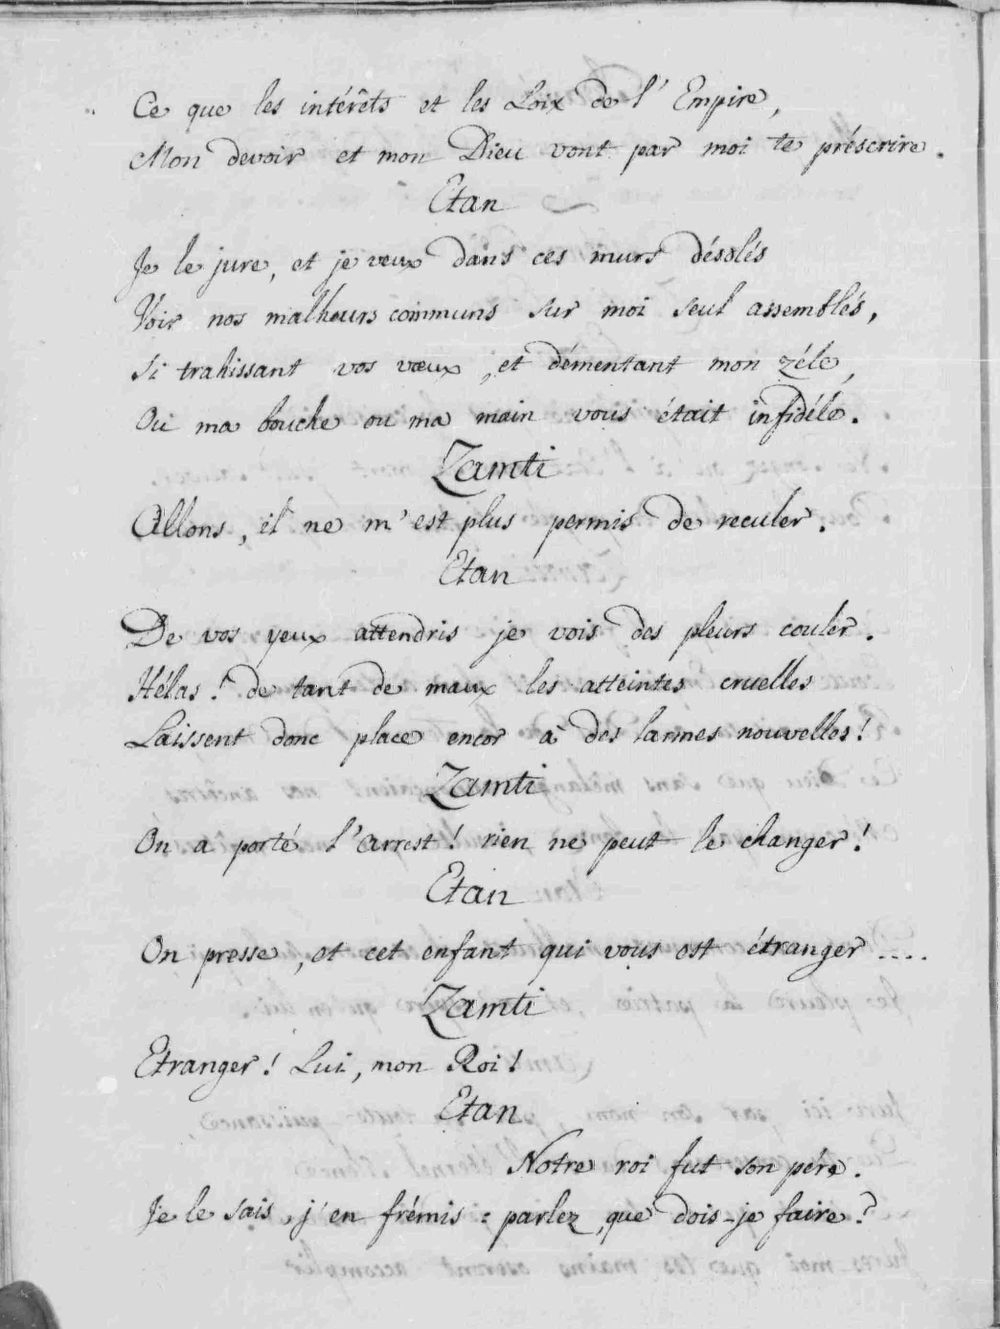 Ce que les intérêts et les Loix de l' Empire,
Mon devoir et mon Dieu vont par moi te préscrire.
Etan
Je le jure, et je veux dans ces murs désolés
Voir nos malheurs communs sur moi seul assemblés,
Si trahissant vos vœux, et démentant mon zéle,
Ou ma bouche ou ma main vous était infidéle.
Zamti
Allons, il ne m'est plus permis de reculer.
Etan
De vos yeux attendris je vois des pleurs couler.
Hélas! de tant de maux les atteintes cruelles
Laissent donc place encor à des larmes nouvelles!
Zamti
On a porté l'arrest! rien ne peut le changer!
Etan
On presse, et cet enfant qui vous est étranger....
Zamti
Etranger! Lui, mon Roi!
Etan
Notre roi fut son pére.
Je le sais, j'en frémis: parlez, que dois-je faire?